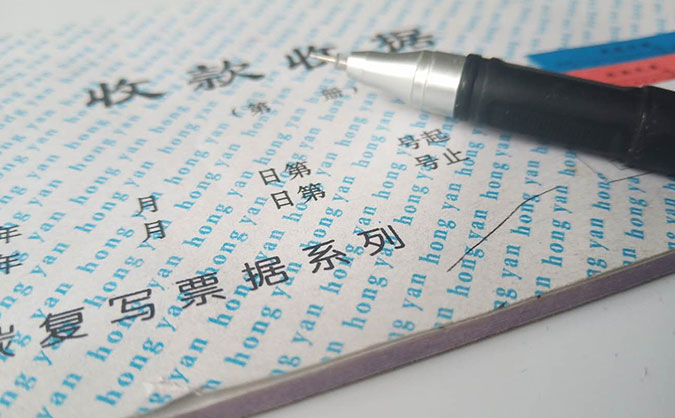 收款收据
（第 册）
月 日第 号起
年 月 日第 号止
年
炭复写票据系列
hong yan hong yan hong yan hong yan